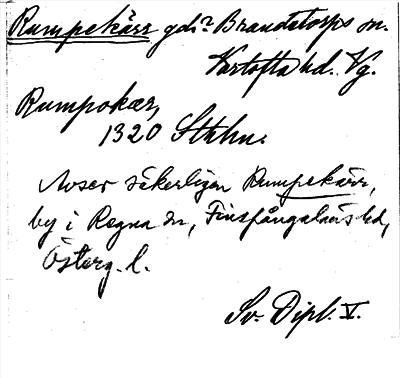 Rumpekärr gd i ? Brandstorps sn.
Vartofta hd. Vg.
Rumpokær,
1320 Sthlm.
Avser säkerligen Rumpekärr,
by i Regna sn, Finspångaläns hd,
Österg. l.
Sv. Dipl. V.